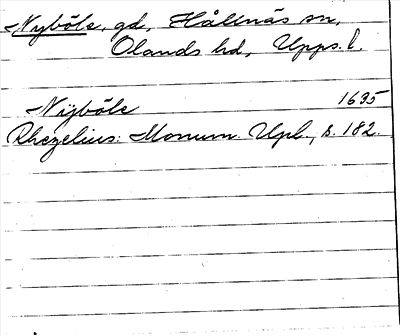 Nyböle, gd, Hållnäs sn,
Olands hd, Upps. l.
Nijböle 1635
Rhezelius: Monum. Upl., s. 182.